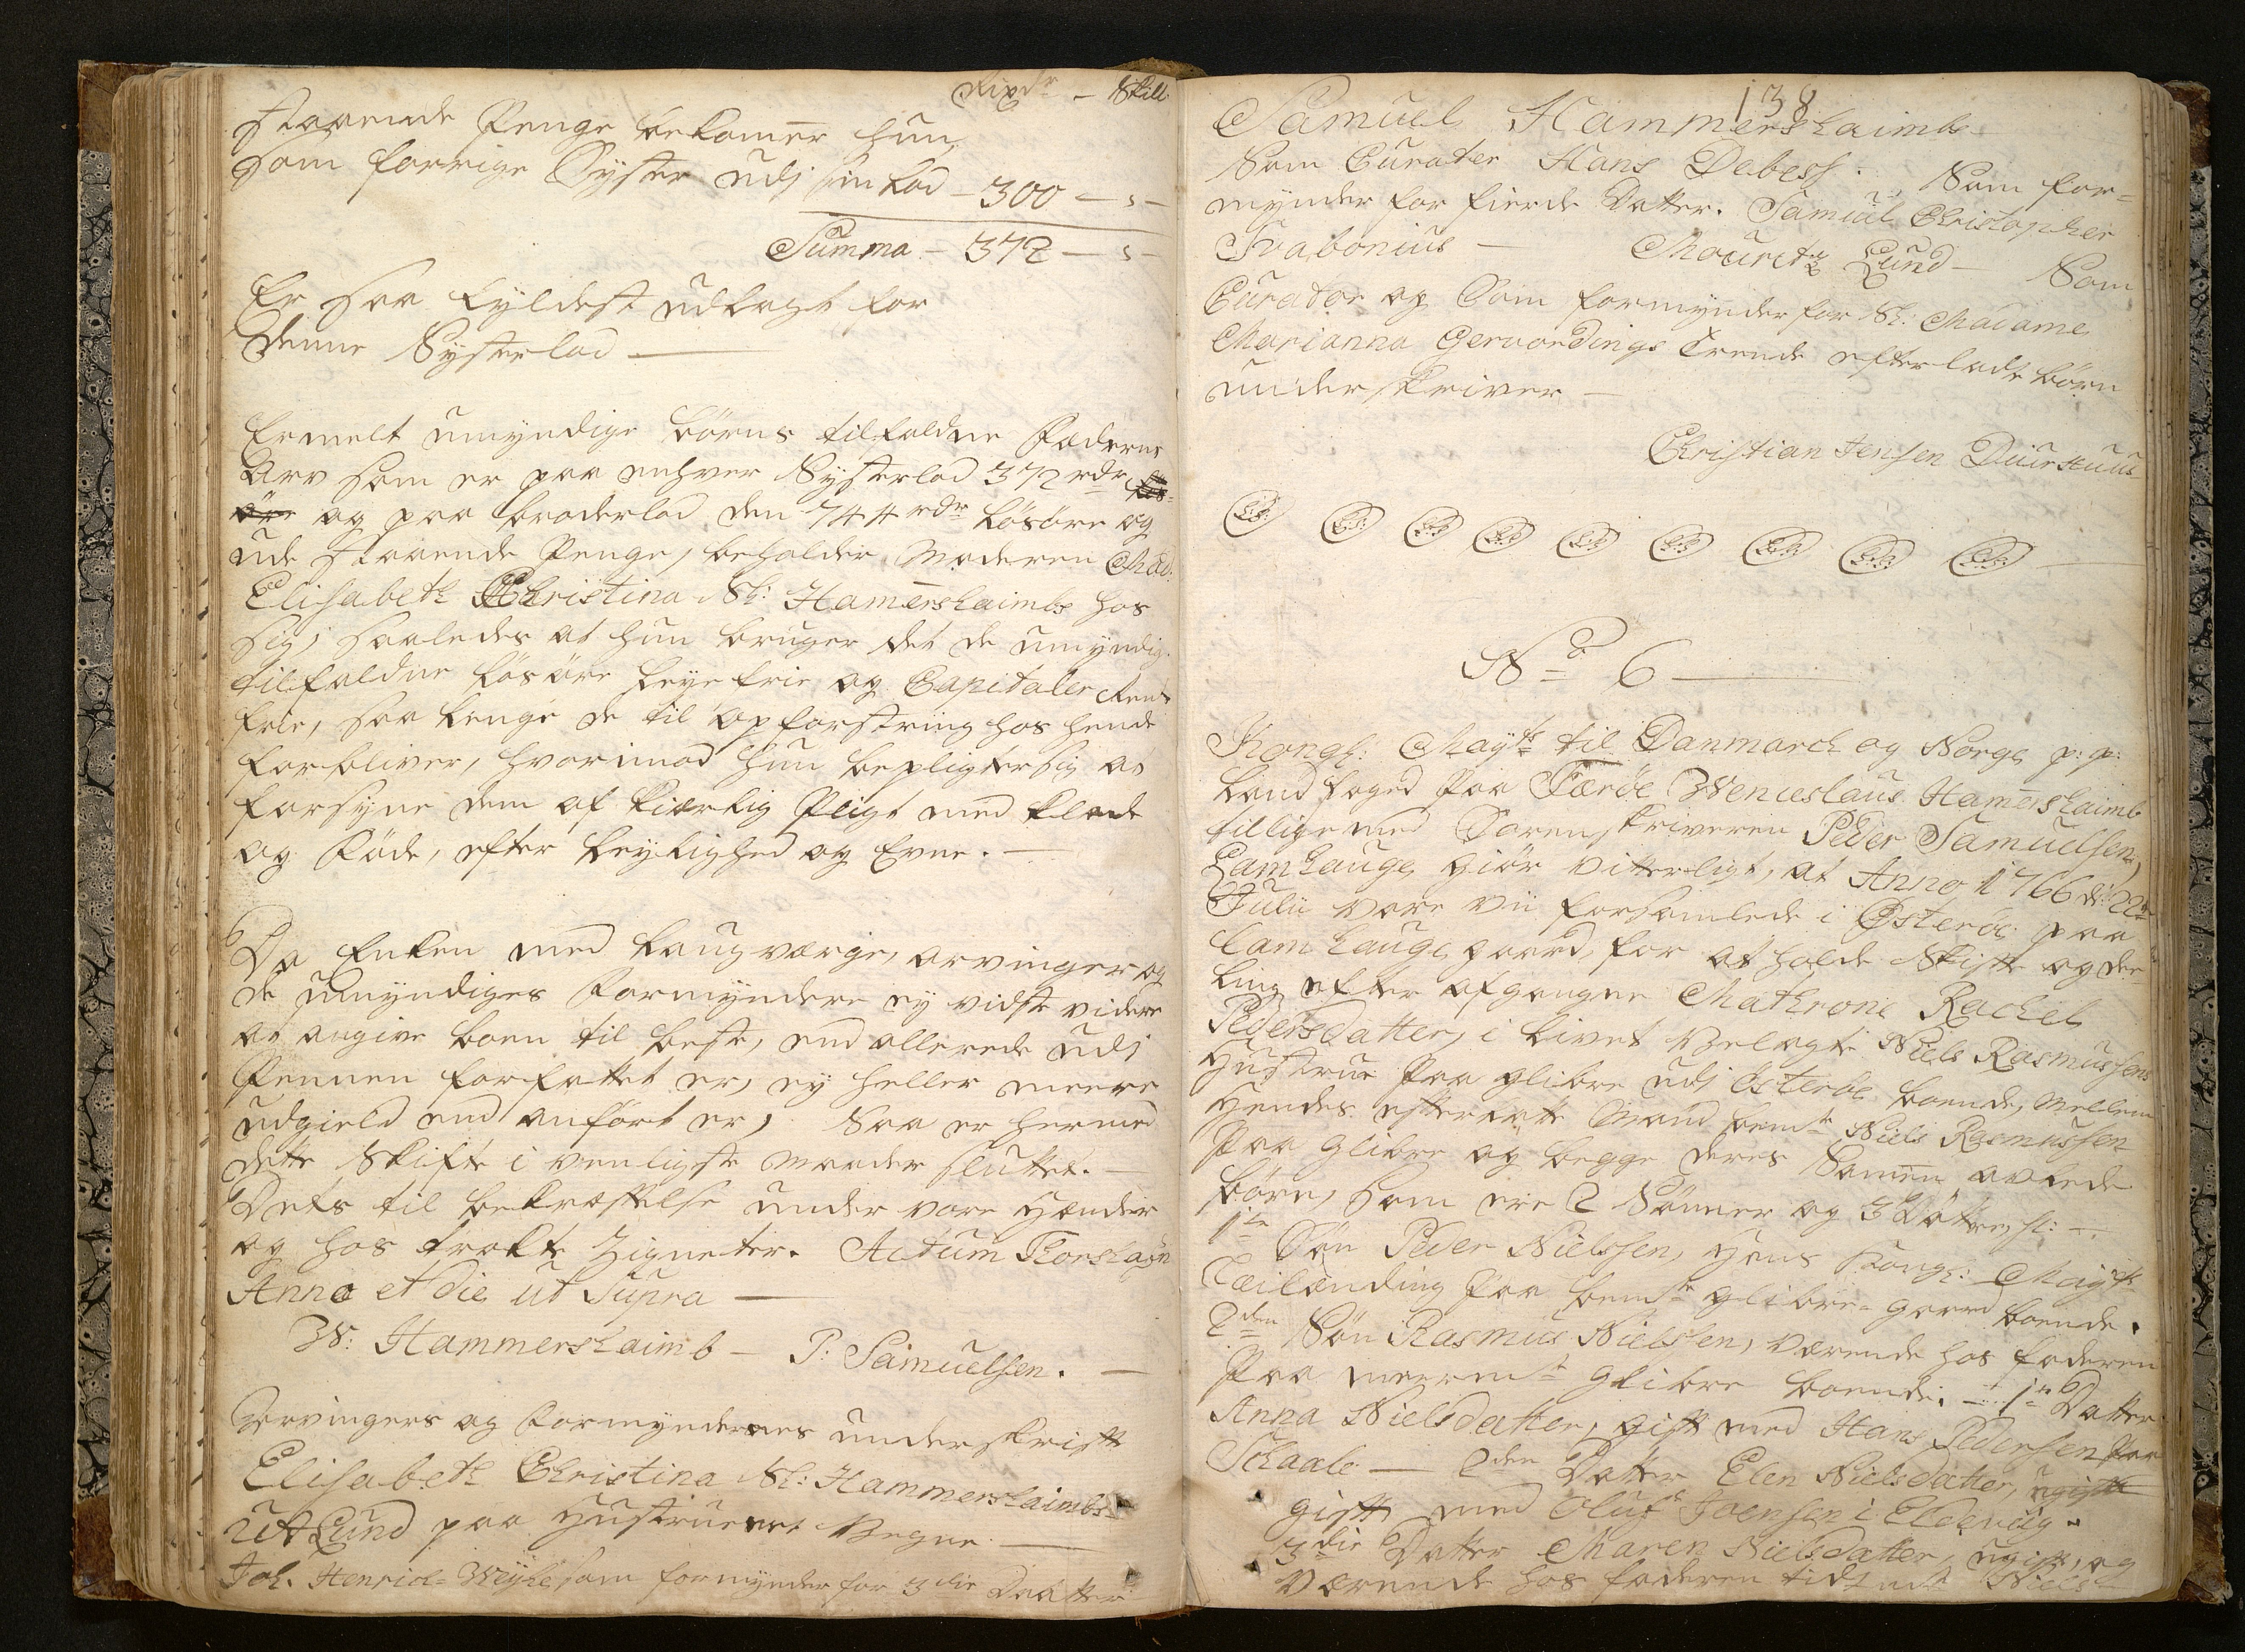 Rixdr – Skill
staaende Penge bekomer hun,
som forrige Syster udj sin Lod – 300 – s –
Summa – 372 – s –
Er saa fyldest udlagt for
denne Systerlod —
Ermelt umyndige börns tilfaldne Fæderne
Arv som er paa enhver Systerlod 372 rdr
og paa broderlod den 744 rdr Lösöre og
ude staaende Penge, beholder Moderen Mad:
Elisabeth Christina Sl: Hamershaimbs hos
sig, saaledes at hun bruger det de umyndig.
tilfaldne Lösöre Leye frie og Capitaler Rent
frie, saa lenge de til opfostring hos hende
forbliver, hvorimod hun bepligter sig at
forsyne dem af kierlig Pligt med Klæde
og Föde, efter Leylighed og Evne. —
Da Enken med Laugværge, arvinger og
de umyndiges Formyndere ey vidste videre
at angive boen til beste, end allerede udj
Pennen forfattet er, ey heller meere
udgield end anfört er, Saa er hermed
dette Skifte i venligste maader sluttet. —
Dets til bekræftelse under vore Hænder
og hos trökte Zigneter. Actum Thorshafn
Anno et die ut Supra —
W: Hammershaimb – P: Samuelsen. —
Arvingers og Formyndernes underskrift
Elisabeth Christina Sl: Hammershaimbs
Lund paa Hustruens Vegne —
Joh. Henrich Weyhe som formynder for 3die Daatter
138
Samuel Hammershaimb
Som Curator Hans Debess. Som for=
mynder for fierde Datter. Samuel Christopher
Svabonius — Mouritz Lund — Som
Curator og Som formynder for Sl: Madame
Marianna Gervordings trende efterladte börn
underskriver —
Christian Jensen Duurhuus
L.S. L.S. L.S. L.S. L.S. L.S. L.S. L.S. L.S. —
No 6 —
Kongl: Mayts til Danmarck og Norge p: p:
Landfoged paa Færöe Wenceslaus Hamershaimb
tillige med Sorenskriveren Peder Samuelsen,
Lamhauge giör vitterligt, at Anno 1766 d: 22de
Julii vare vii forsamlede i Österöe paa
Lamhauge gaard, for at holde Skifte og dee=
ling efter afgangne Mathrone Rachel
Pedersdatter, i Livet Velagte Niels Rasmussens
Hustrue paa Glibre udj Österöe boende, mellem
Hendes efterlatte Mand bemte Niels Rasmussen
paa Glibre og begge deres Samen avlede
börn, som ere 2 Sönner og 3 Döttre, sc: —
1te Sön Peder Nielssen, Hans Kongl: Mayts
Leilænding paa bemte Glibre-Gaard boende.
2den Sön Rasmus Nielssen, værende hos faderen
paa meermte Glibre boende. — 1te Datter
Anna Nielsdatter, gift med Hans Pedersen paa
Schaale — 2den Datter Elen Nielsdatter, ugift
gift med Oluf Joensen i Eldevig.
3die Datter Maren Nielsdatter, ugift, og
værende hos faderen tidt. Niels